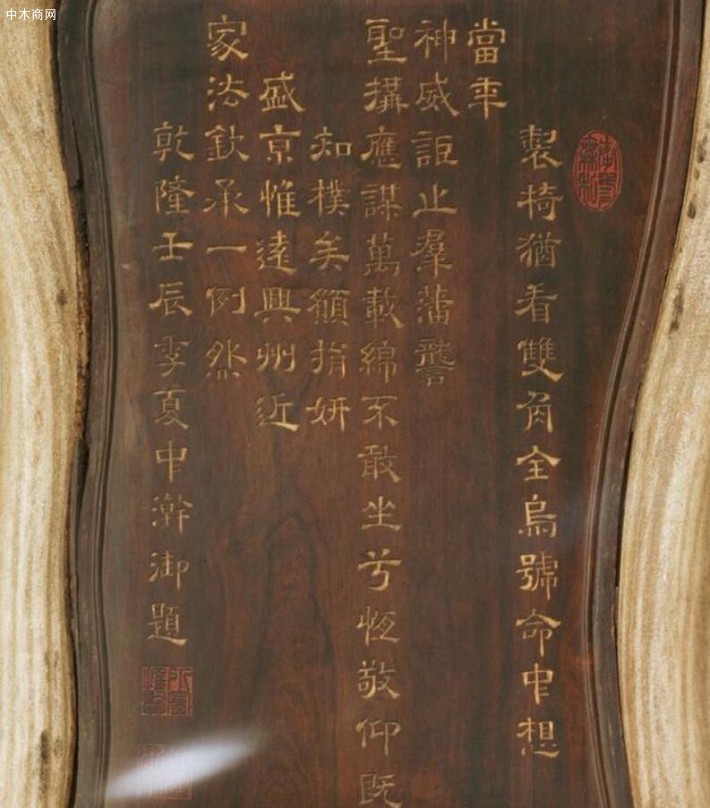 中木商网
製椅猶看雙角全烏號命中想
當年
神威詎止羣藩讋
聖搆應謀萬載綿不敢坐兮恆敬仰既
知樸矣願捐妍
盛京惟遠興州近
家法欽承一例然
乾隆壬辰季夏中澣御題